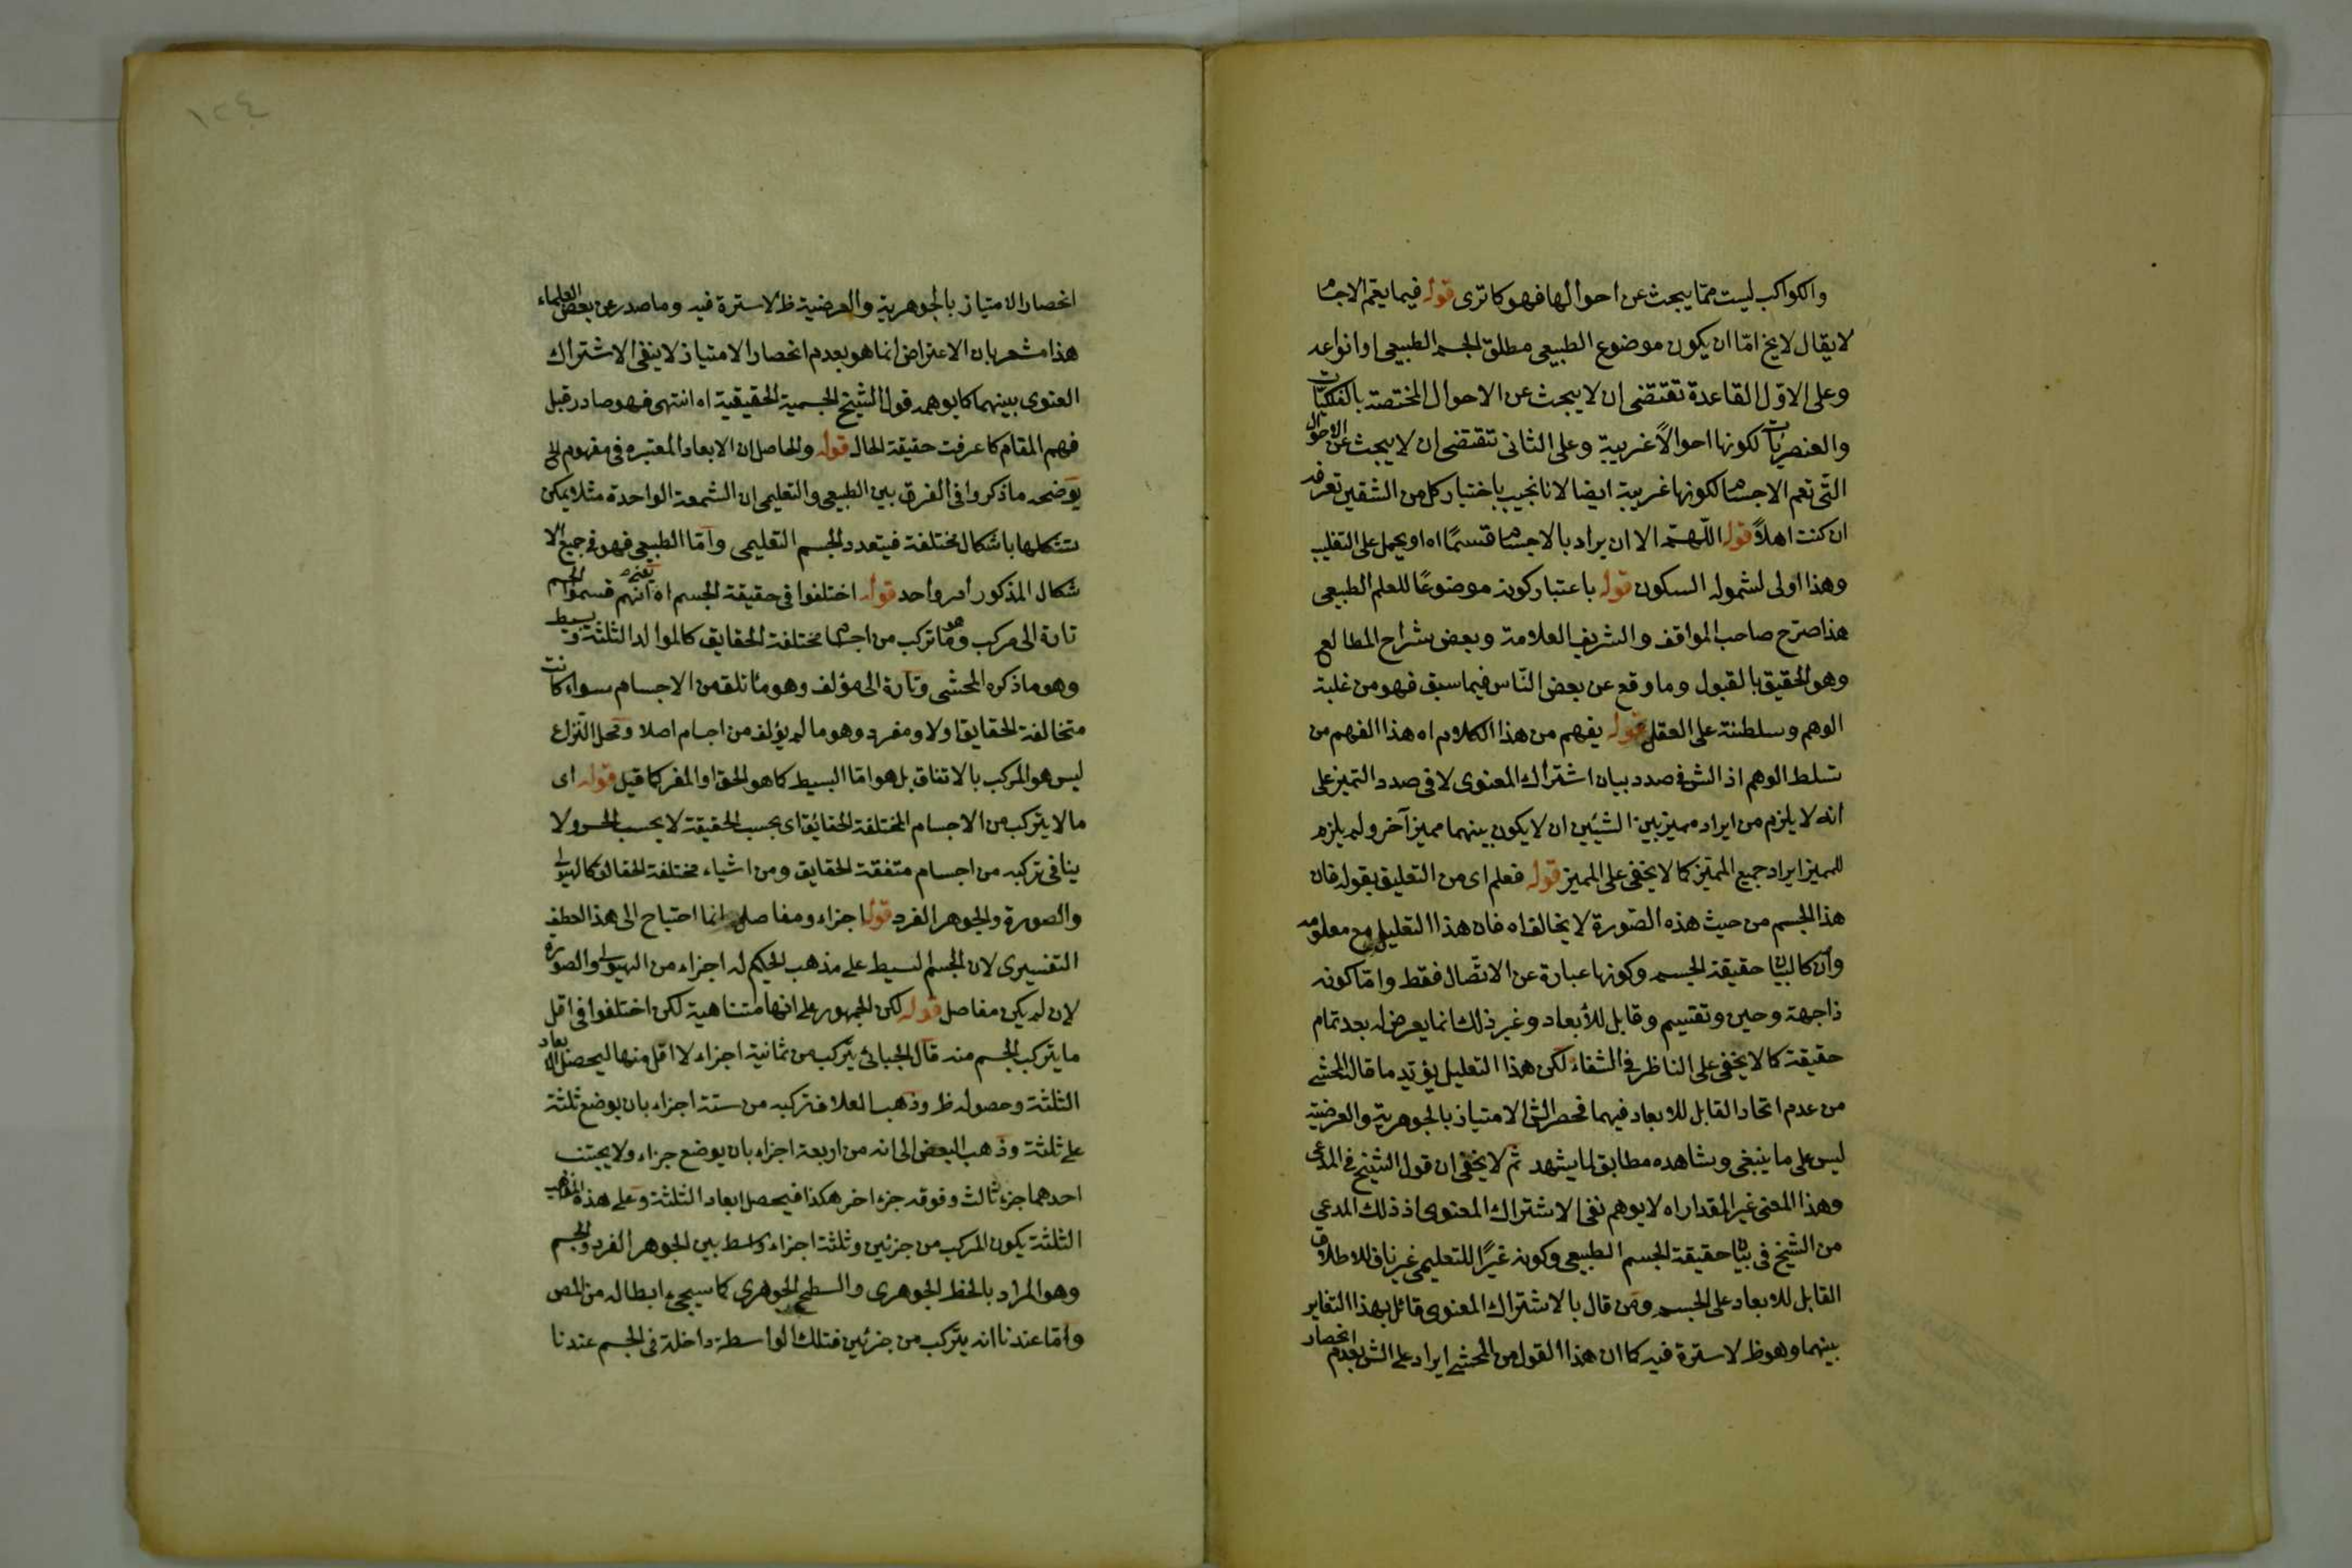 والكواكب ليست مما يبحث عن احوالها فهو كما ترى قوله فيما يعم الاجسام
لا يقال لا يخ امّا ان يكون موضوع الطبيعى مطلق الجسم الطبيعى او انواعه
وعلى الاوّل القاعدة تقتضى ان لا يبحث عن الاحوال المختصة بالفلكيات
والعنصريات لكونها احوالاً غريبة وعلى الثانى تقتضى ان لا يبحث عن الاحوال
التّى تعم الاجسام لكونها غريبة ايضا لانا نجيب باختيار كل من الشقين تعرفه
ان كنت اهلاً قوله اللّهمّ الا ان يراد بالاجسام قسمًا اه او يحمل على التغليب
وهذا اولى لشموله السكون قوله باعتبار كونه موضوعًا للعلم الطبيعى
هذا صرّح صاحب المواقف والشريف العلامة وبعض شراح المطالع
وهو الحقيق بالقبول وما وقع عن بعض النّاس فيما سبق فهو من غلبة
الوهم وسلطنة على العقل قوله يفهم من هذا الكلام اه هذا الفهم من
تسلط الوهم اذ الش فى صدد بيان اشتراك المعنوى لا فى صدد التميز على
انه لا يلزم من ايراد مميز بين الشيئين ان لا يكون بينهما مميز آخر ولم يلزم
للمميز ايراد جميع المميّز كما لا يخفى على المميز قوله فعلم اى من التعليق بقوله فان
هذا الجسم من حيث هذه الصّورة لا يخالف اه فان هذا التعليل مع معلومه
وان كا لبيان حقيقة الجسم وكونها عبارة عن الاتّصال فقط وامّا كونه
ذا جهة وحين وتقسيم وقابل للأبعاد وغير ذلك انما يعرض له بعد تمام
حقيقة كما لا يخفى على الناظر فى الشفاء لكن هذا التعليل يؤيّد ما قال المحشى
من عدم اتحاد القابل للابعاد فيهما فحصر الش الامتياز بالجوهرية والعرضية
ليس على ما ينبغى ويشاهده مطابق لما يشهد ثم لا يخفى ان قول الشيخ فى المدعى
وهذا المعنى غير المقدار اه لا يوهم نفى الاشتراك المعنوى اذ ذلك المدعى
من الشيخ فى بيان حقيقة الجسم الطبيعى وكونه غيرًا للتعليمى غير ناف للاطلاق
القابل للابعاد على الجسم ومن قال بالاشتراك المعنوى قائل بهذا التغاير
بينهما وهو ظ لا سترة فيه كما ان هذا القول من المحشى ايراد على الش بعدم انحصار
١٢٤
انحصار الامتياز بالجوهرية والعرضية ظ لا سترة فيه وما صدر عن بعض العلماء
هذا مشعر بان الاعتراض انما هو بعدم انحصار الامتياز لا ينفى الاشتراك
المعنوى بينهما كما يوهمه قول الشيخ الجسمية الحقيقية اه انتهى فهو صادر قبل
فهم المقام كما عرفت حقيقة الحال قوله والحاصل ان الابعاد المعتبره فى مفهوم الخ
يوضحه ما ذكروا فى الفرق بين الطبيعى والتعليمى ان الشمعة الواحدة مثلا يمكن
تشكلها باشكال مختلفة فيتعدد الجسم التعليمى وامّا الطبيعى فهو فى جميع الا
شكال المذكور امر واحد قوله اختلفوا فى حقيقة الجسم اه يعنى انهم قسموا الجسم
تارة الى مركب وهو ما تركب من اجسام مختلفة الحقايق كالموالد الثلثة وبسيط
وهو ما ذكره المحشى وتارة الى مؤلف وهو ما تلف من الاجسام سواء كانت
متخالفة الحقايق اولا ومفرد وهو ما لم يؤلف من اجسام اصلا ومحل النّزاع
ليس هو المركب بالاتفاق بل هو امّا البسيط كما هو الحق او المفر كما قيل قوله اى
ما لا يتركب من الاجسام المختلفة الحقائق اى بحسب الحقيقة لا بحسب الحس ولا
ينافى تركبه من اجسام متفقة الحقايق ومن اشياء مختلفة الحقائق كالهيولى
والصورة والجوهر الفرد قوله اجزاء ومفاصل انما احتياج الى هذا العطف
التفسيرى لان الجسم البسيط على مذهب الحكيم له اجزاء من الهيولى والصورة
لان لم يكن مفاصل قوله لكن الجمهور على انها متناهية لكن اختلفوا فى اقل
ما يتركب الجسم منه قال الجبائى يتركب من ثمانية اجزاء لا اقل منها ليحصل الابعاد
الثلثة وحصوله ظ وذهب العلاف تركبه من ستة اجزاء بان يوضع ثلثة
على ثلثة وذهب البعض الى انه من اربعة اجزاء بان يوضع جزاء ولا يجتنب
احدهما جزء ثالث وفوقه جزء اخر هكذا فيحصل ابعاد الثلثة وعلى هذه المذاهب
الثلثة يكون المركب من جزئين وثلثة اجزاء واسط بين الجوهر الفرد والجسم
وهو المراد بالخط الجوهرى والسطح الجوهرى كما سيجئ ابطاله من المص
وامّا عندنا انه يتركب من جزئين فتلك الواسطة داخلة فى الجسم عندنا